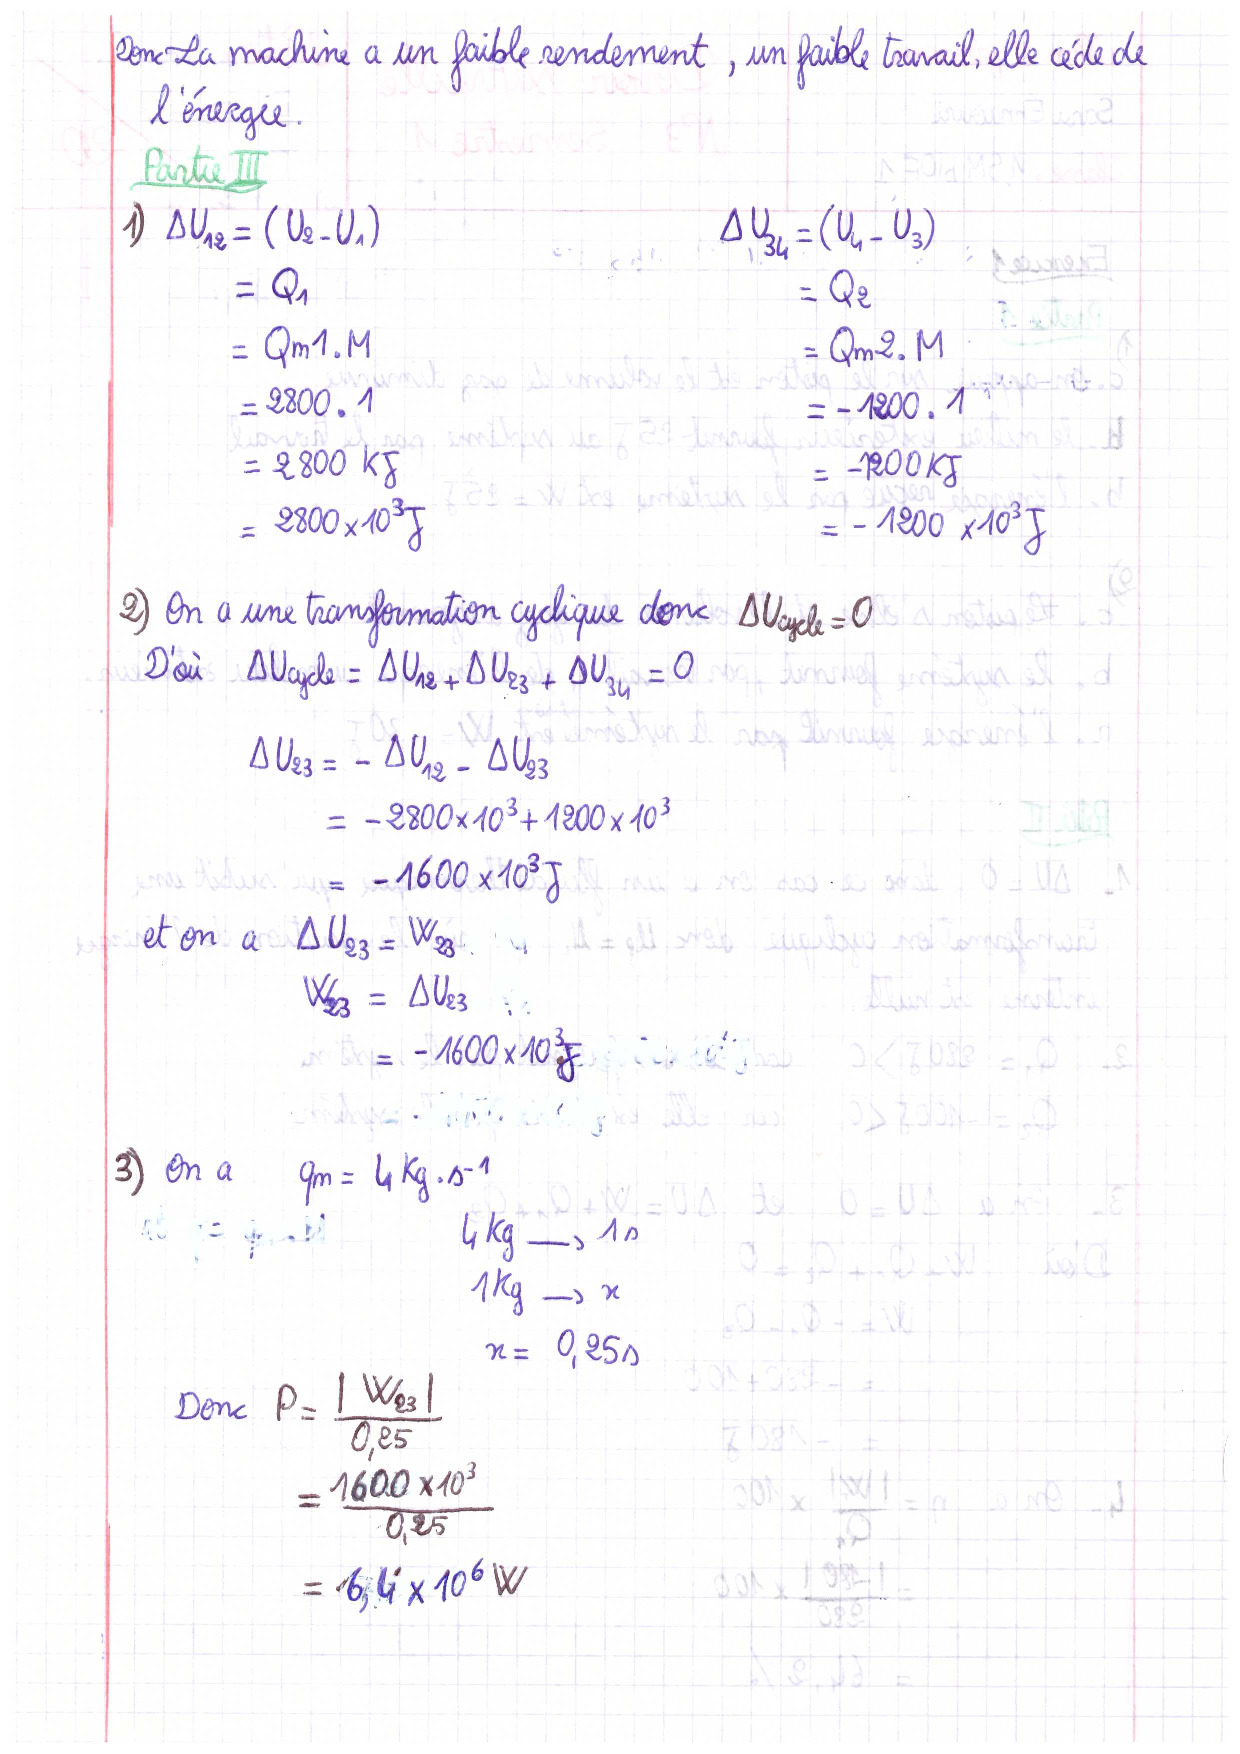 Donc La machine a un faible rendement, un faible travail, elle cède de
l'énergie.
Partie III
1) ΔU12 = (U2 - U1)
= Q1
= Qm1.M
= 2800.1
= 2800 KJ
= 2800 x 10³ J
ΔU34 = (U4 - U3)
= Q2
= Qm2.M
= -1200.1
= -1200 KJ
= -1200 x 10³ J
2) On a une transformation cyclique donc ΔUcycle = 0
D'où ΔUcycle = ΔU12 + ΔU23 + ΔU34 = 0
ΔU23 = - ΔU12 - ΔU23
= -2800 x 10³ + 1200 x 10³
= -1600 x 10³ J
et on a ΔU23 = W23
W23 = ΔU23
= -1600 x 10³ J
3) On a qm = 4 Kg.s⁻¹
4 Kg → 1s
1 Kg → x
x = 0,25s
Donc P = |W23| / 0,25
= 1600 x 10³ / 0,25
= 6,4 x 10⁶ W